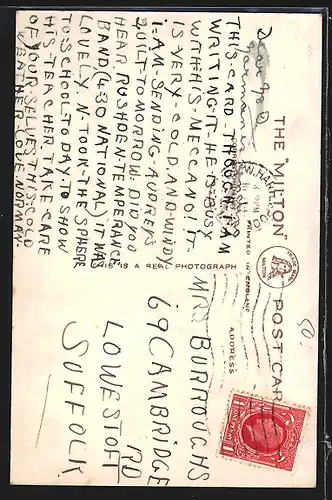 THE "MILTON" POST CARD
MILTON
PRINTED IN ENGLAND
THIS IS A REAL PHOTOGRAPH
ADDRESS
Dear
Norman
THIS-CARD-THOUGH I AM
WRITING-IT-HE IS BUSY
WITH HIS MECCANO! IT-
IS VERY-COLD-AND-WINDY
I-AM-SENDING-AUDREY'S
QUILT-TOMORROW. DID YOU
HEAR RUSHDEN-TEMPERANCE
BAND (4-30 NATIONAL) IT WAS
LOVELY. N-TOOK-THE SPHERE
TO-SCHOOL TO-DAY TO SHOW
HIS-TEACHER TAKE CARE
OF YOUR SELVES THIS COLD
WEATHER-LOVE NORMAN-
MRS BURROUGHS
69 CAMBRIDGE
RD
LOWESTOFT
SUFFOLK